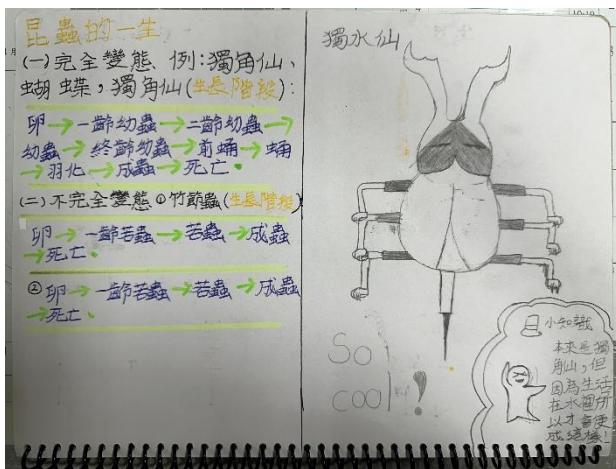 昆蟲的一生
(一)完全變態、例:獨角仙、
蝴蝶,獨角仙(生長階段):
卵→一齡幼蟲→二齡幼蟲→
幼蟲→終齡幼蟲→前蛹→蛹
→羽化→成蟲→死亡。
(二)不完全變態①竹節蟲(生長階段)
卵→一齡若蟲→若蟲→成蟲
→死亡。
②卵→一齡若蟲→若蟲→成蟲
→死亡、
獨水仙
So
cool!
小知識
本來是獨
角仙,但
因為生活
在水裡所
以才會變
成這樣!